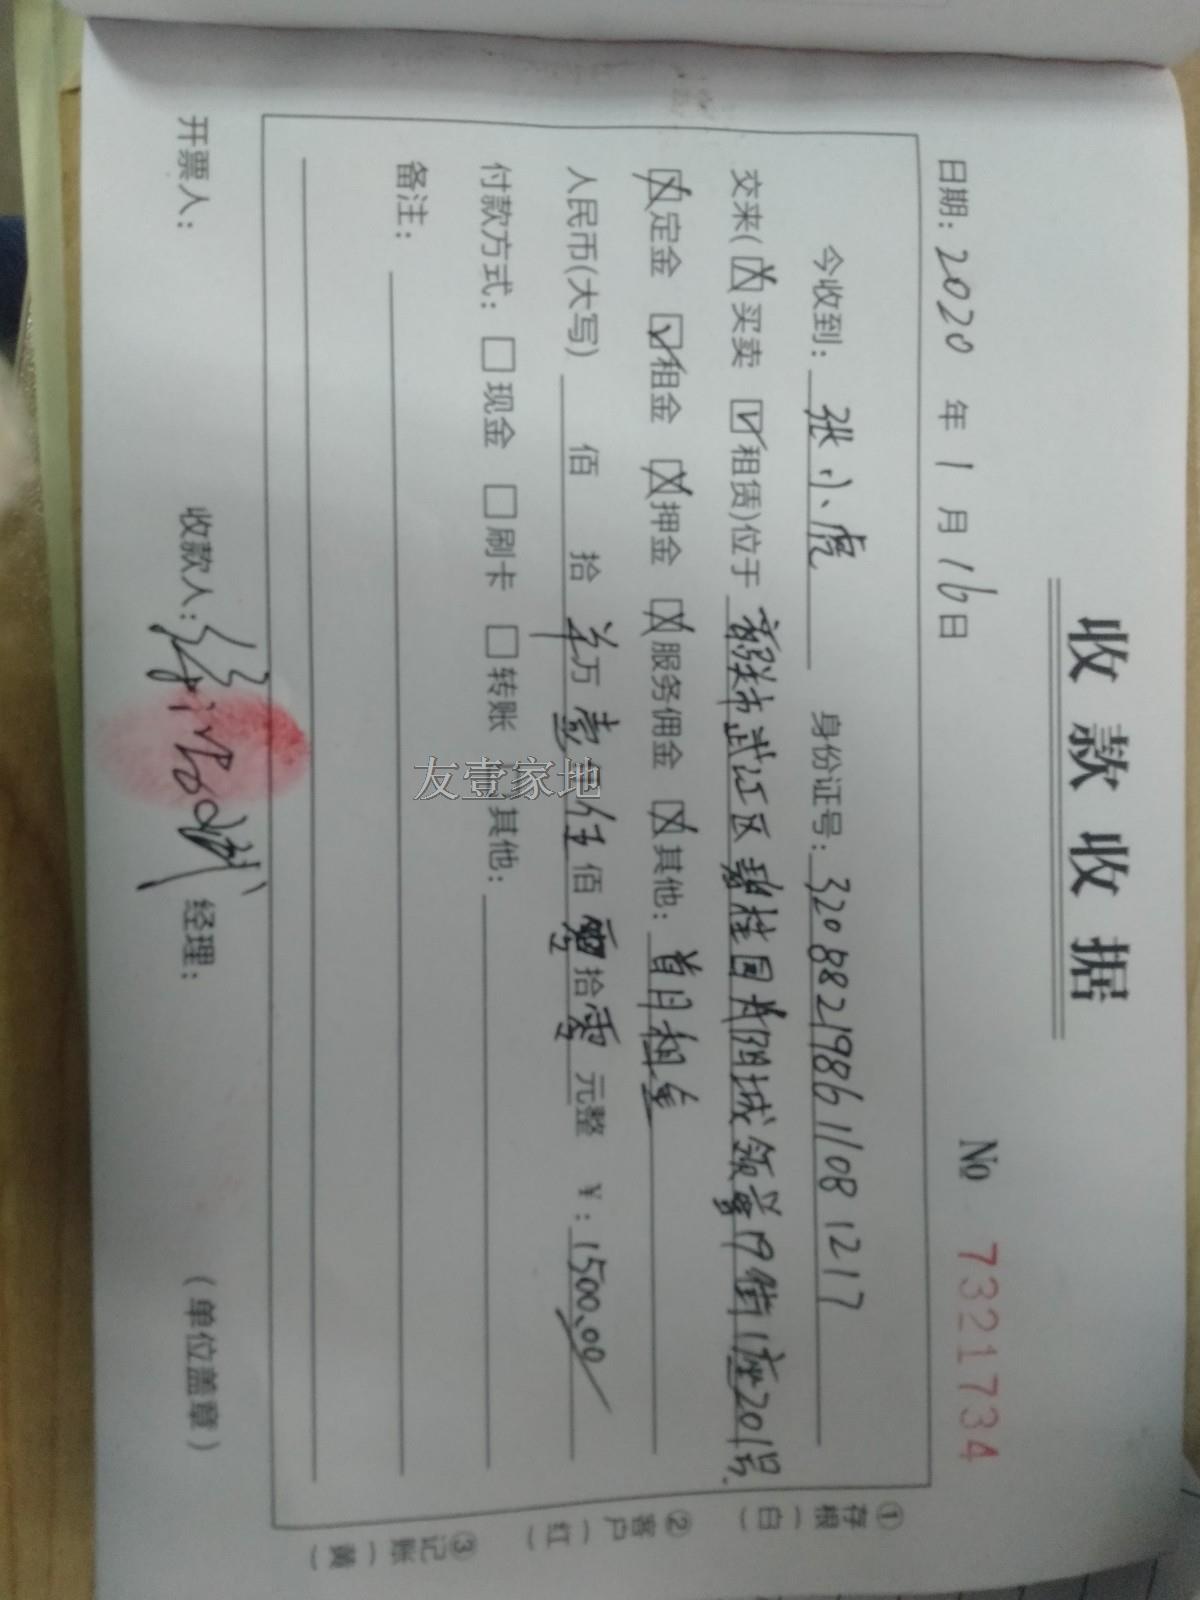 收款收据
No 7321734
日期: 2020 年 1 月 16 日
今收到: 张小虎 身份证号: 320882198611081217
交来( 买卖 租赁)位于 韶关市武江区碧桂园太阳城领誉19街1座201号
定金 租金 押金 服务佣金 其他: 首月租金
人民币(大写) 佰 拾 万 壹仟伍佰零拾零元整 ¥: 1500.00
付款方式: 现金 刷卡 转账 其他:
备注:
开票人: 收款人: 经理: (单位盖章)
①存根(白) ②客户(红) ③记账(黄)
友壹家地